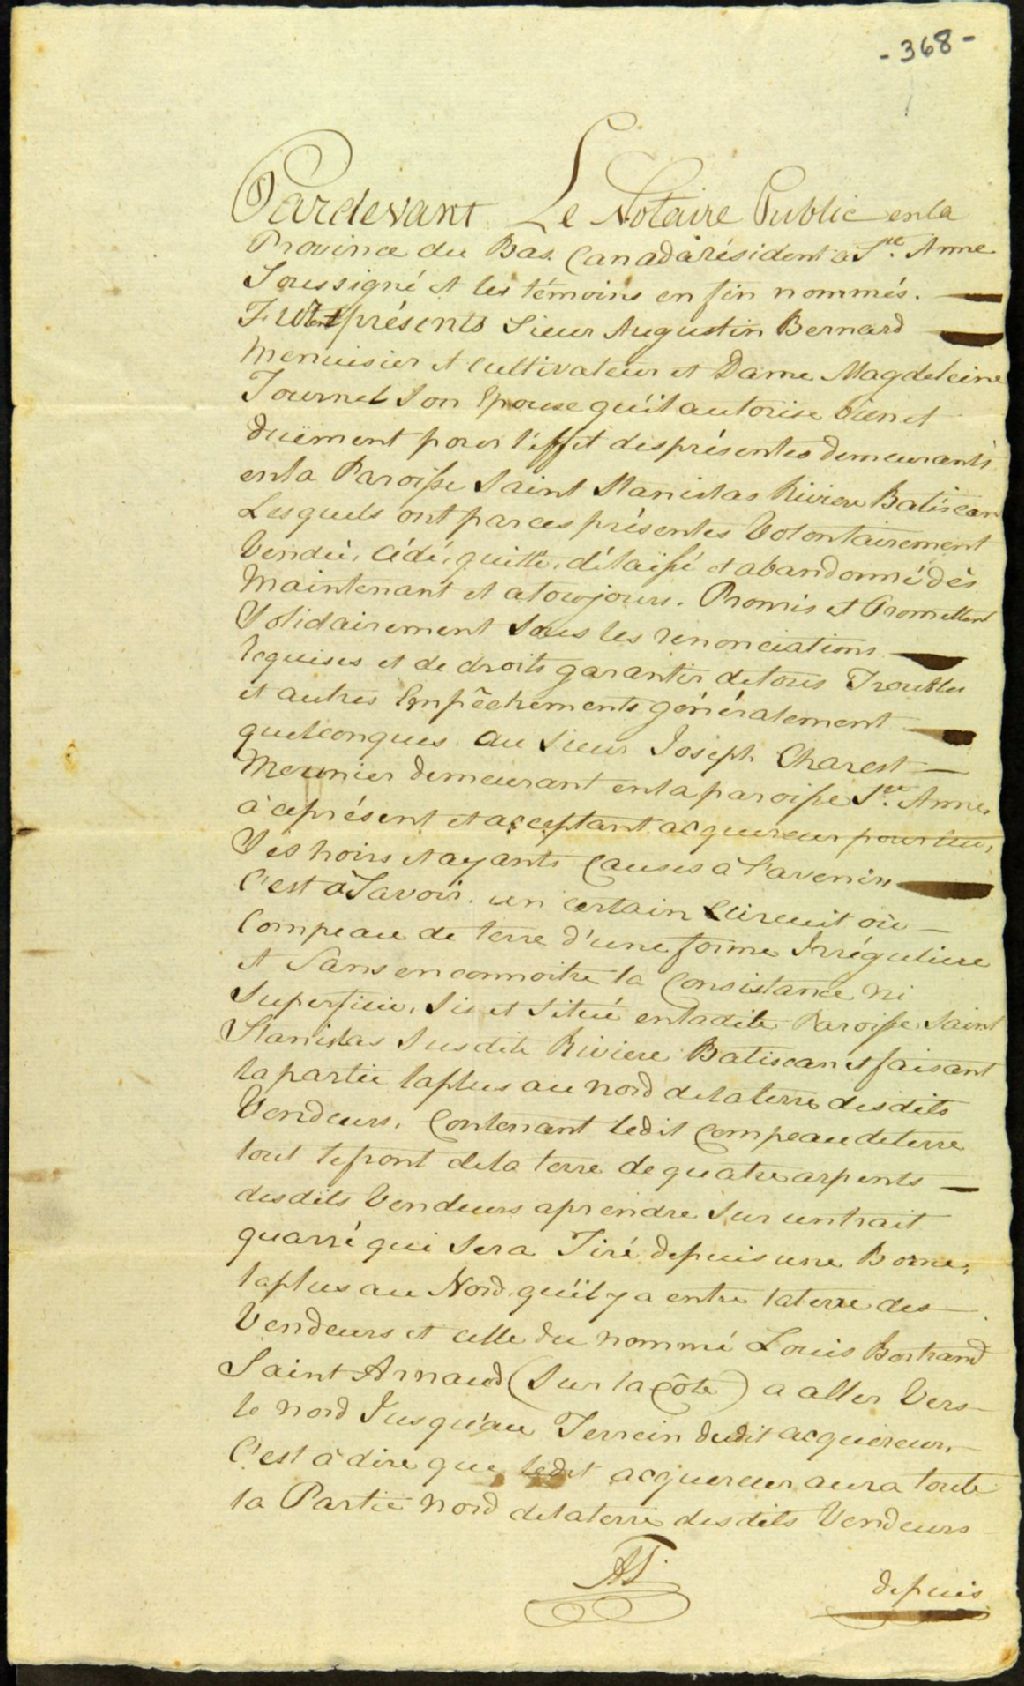 - 368 -
Pardevant Le Notaire Public en la
Province du Bas Canada résident à Ste. Anne
Soussigné et les témoins en fin nommés.
Furent présents Sieur Augustin Bernard
Menuisier et cultivateur et Dame Magdeleine
Tournel Son Epouse qu'il autorise bien et
Duëment pour l'effet des présentes demeurants
en la Paroisse Saint Stanislas Riviere Batiscan
Lesquels ont par ces présentes Volontairement
Vendu, Cédé, quitté, délaissé et abandonné dès
Maintenant et a toujours. Promis et Promettent
Solidairement Sous les renonciations
requises et de droits garantir de tous Troubles
et autres Empêchements généralement
quelconques au Sieur Joseph Charest
Meunier demeurant en la paroisse Ste. Anne
à ce présent et acceptant acquereur pour lui,
Ses hoirs et ayants Causes à l'avenir
C'est à Savoir. un certain Circuit où
Compeau de terre d'une forme Irréguliere
et Sans en connoitre la Consistance ni
Superficie, Sis et Situé en ladite Paroisse Saint
Stanislas Susdite Riviere Batiscan et faisant
la partie la plus au nord de la terre desdits
Vendeurs, Contenant ledit Compeau de terre
tout le front de la terre de quatre arpents
desdits Vendeurs a prendre Sur un trait
quarré qui Sera Tiré depuis une Borne,
la plus au Nord qu'il y a entre la terre des
Vendeurs et celle du nommé Louis Bertrand
Saint Arnaud (Sur la Côte) a aller Vers
le nord Jusqu'au Terrein dudit acquereur,
C'est à dire que ledit acquereur aura toute
la Partie Nord de la terre desdits Vendeurs
depuis